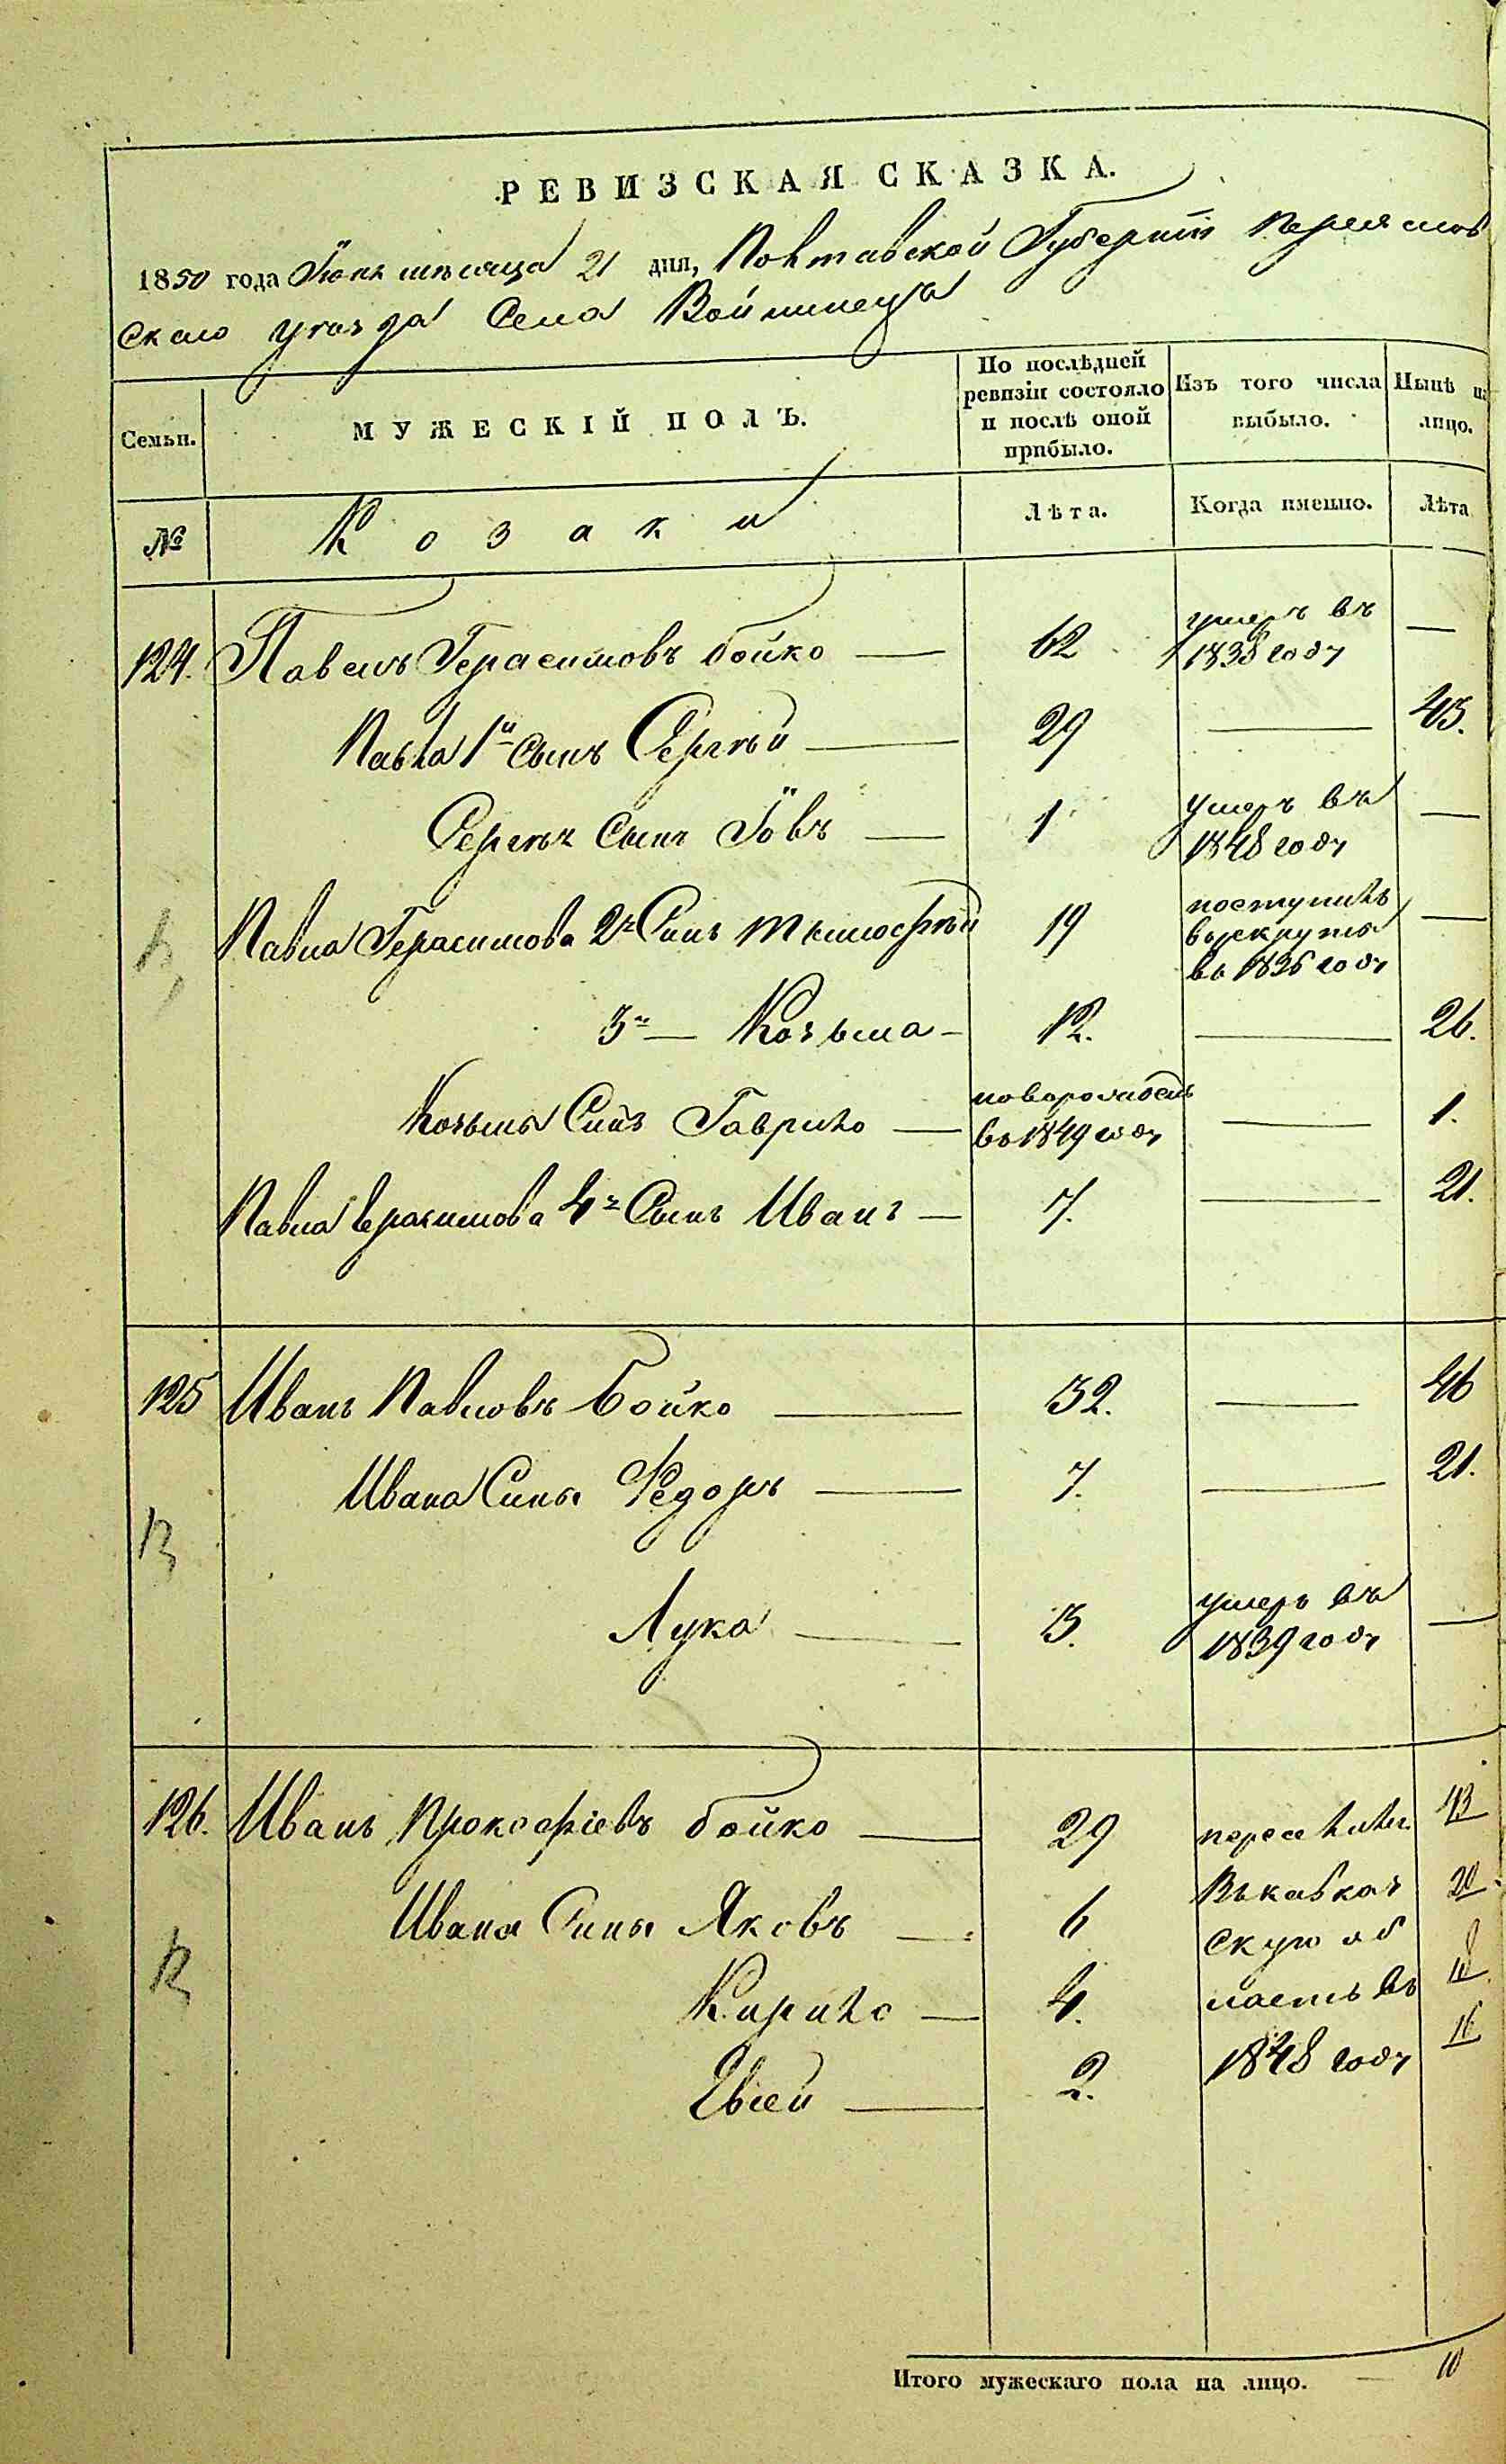 РЕВИЗСКАЯ СКАЗКА.
1850 года Іюня мѣсяца 21 дня, Полтавской Губерніи Переяслов
скаго уѣзда Села Войтовецъ
Семьи.
МУЖЕСКІЙ ПОЛЪ.
По послѣдней
ревизіи состояло
и послѣ оной
прибыло.
Изъ того числа
выбыло.
Нынѣ на
лицо.
№
Козаки
Лѣта.
Когда именно.
Лѣта
124. Павелъ Герасимовъ Бойко — 62 умеръ въ 1838 году —
Павла 1й Сынъ Сергѣй — 29 — 43.
Сергѣя Сынъ Іовъ — 1 умеръ въ 1848 году —
Павла Герасимова 2й Сынъ Тымофѣй 19 поступилъ врекруты въ 1836 году —
3й — Козьма — 12. — 26.
Козьмы Сынъ Гаврило — новорожденъ въ 1849 году — 1.
Павла Герасимова 4й Сынъ Иванъ — 7. — 21.
125 Иванъ Павловъ Бойко — 32. — 46
Ивана Сыны Федоръ — 7. — 21.
Лука — 3. умеръ въ 1839 году —
126. Иванъ Прокофіевъ Бойко — 29 переселилс. 43
Ивана Сыны Яковъ — 6 Въ кавказ 20
скую об
Кирило — 4. ласть въ 18
Евсей — 2. 1848 году 16
Итого мужескаго пола на лицо. — 10